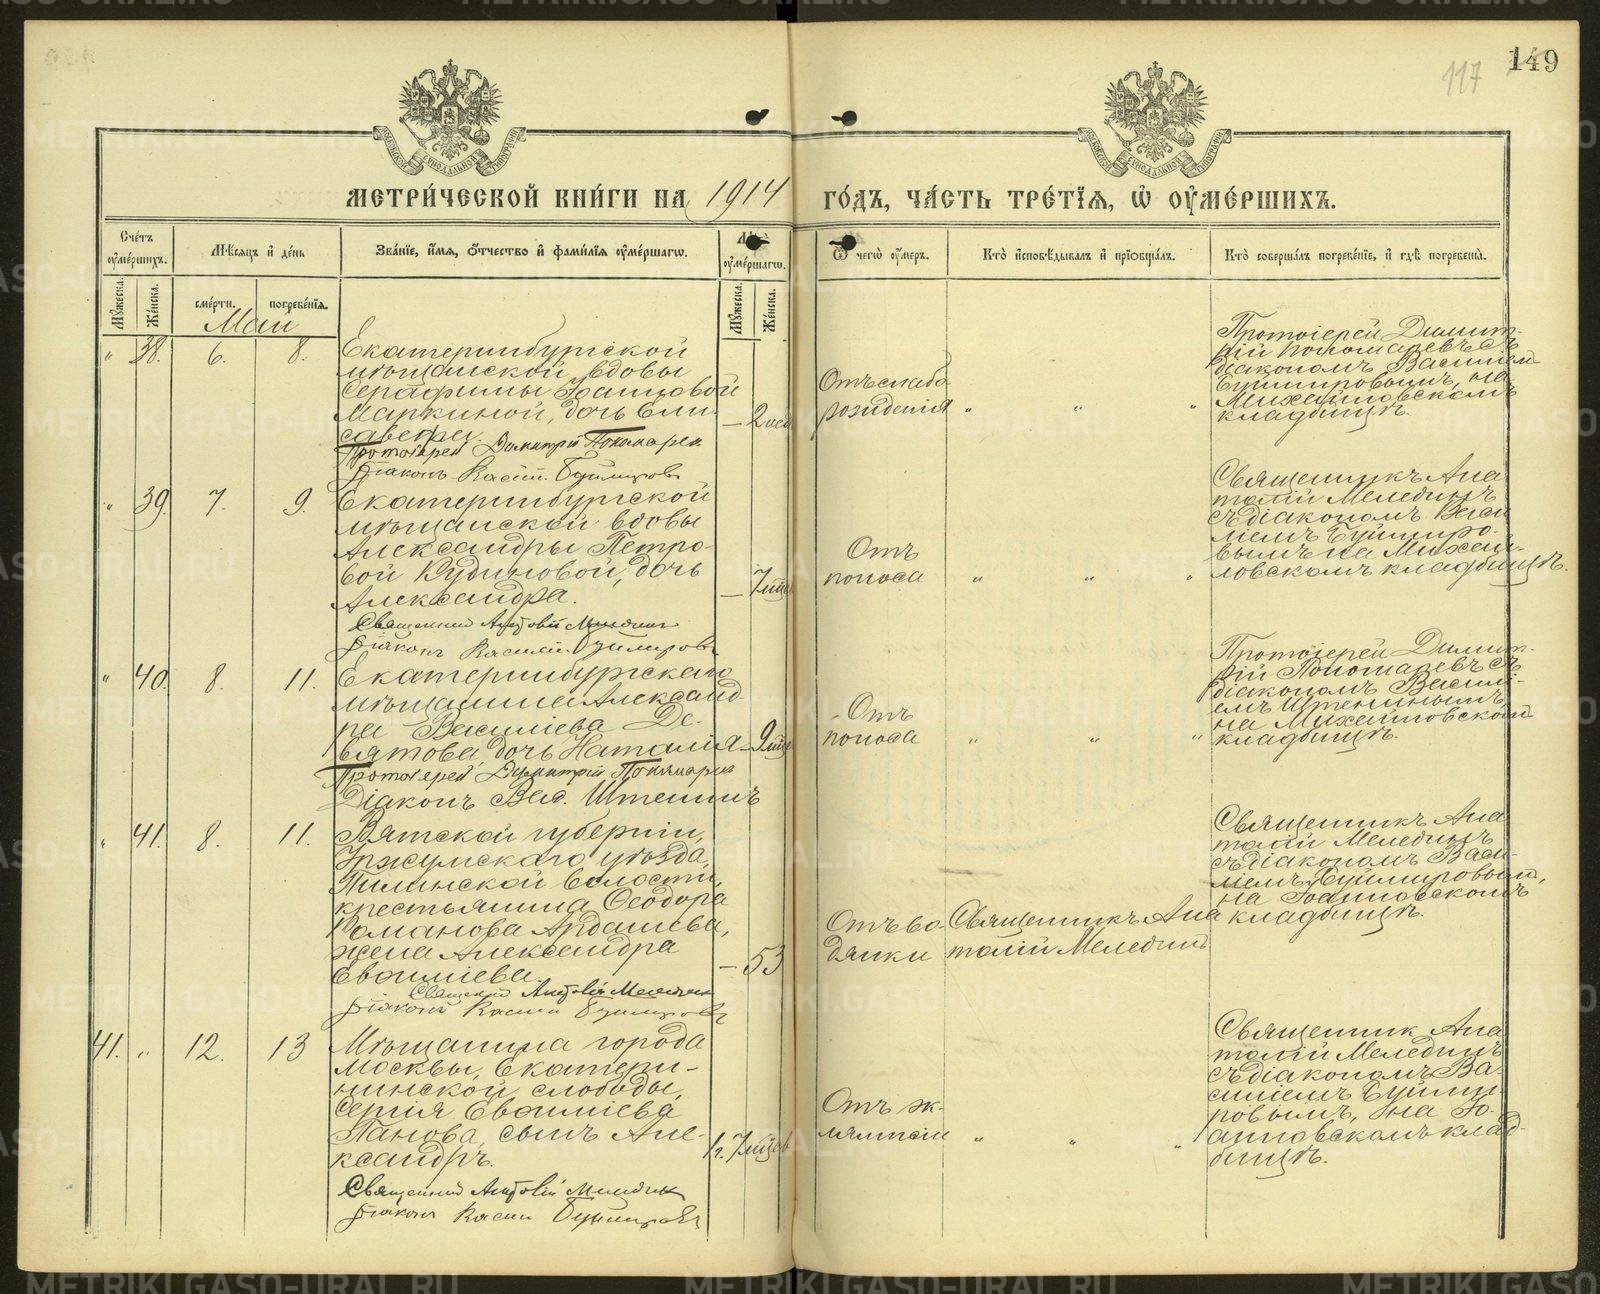 149
117
МЕТРИ́ЧЕСКОЙ КНИ́ГИ НА 1914 ГО́ДЪ, ЧА́СТЬ ТРЕ́ТІѦ, Ѡ҆ ОУ҆МЕ́РШИХЪ.
Счетъ оумершихъ.
Мѣсяцъ и день
Званіе, имя, отчество и фамилія оумершагѡ.
Лѣта оумершагѡ.
Ѿ чегѡ оумеръ.
Кто исповѣдывалъ и пріобщалъ.
Кто совершалъ погребеніе, и гдѣ погребены.
Мужеска.
Женска.
смерти.
погребенія.
Мужеска.
Женска.
Май
" 38. 6. 8.
Екатеринбургской
мѣщанской вдовы
Серафимы Іоанновой
Маркиной, дочь Ели-
савета.
Протоіерей Димитрій Пономаревъ
Діаконъ Васил. Буймировъ
— 2 нед
Отъ слабо-
рожденія
" " "
Протоіерей Димит-
рій Пономаревъ съ
діакономъ Василіем
Буймировымъ, на
Михайловскомъ
кладбищѣ.
" 39. 7. 9.
Екатеринбургской
мѣщанской вдовы
Александры Петро-
вой Кудиновой, дочь
Александра.
Священник Анатолій Меледин
Діаконъ Василій Буймировъ
— 7 мѣс
Отъ
поноса
" " "
Священникъ Ана
толій Мелединъ
съ діакономъ Васи
ліемъ Буймиро-
вымъ на Михай-
ловскомъ кладбищѣ.
" 40. 8. 11.
Екатеринбургскаго
мѣщанина Александ-
ра Василіева Де-
вятова, дочь Наталія
Протоіерей Димитрій Пономарев
Діаконъ Вас. Штенинъ
— 9 мѣс
Отъ
поноса
" " "
Протоіерей Димит-
рій Пономаревъ съ
діакономъ Васили-
емъ Штенинымъ
на Михайловском
кладбищѣ.
" 41. 8. 11.
Вятской губерніи,
Уржумскаго уѣзда,
Пилинской волости,
крестьянина Ѳеодора
Романова Ардашева,
жена Александра
Евѳиміева.
Священник Анатолій Меледин
Діаконъ Васил Буймировъ
— 53
Отъ во-
дянки
Священникъ Ана
толій Меледин
Священникъ Ана
толій Мелединъ
съ діакономъ Васи-
ліемъ Буймировым,
на Іоанновскомъ
кладбищѣ.
41. " 12. 13
Мѣщанина города
Москвы, Екатери-
нинской слободы,
Сергія Евѳиміева
Панова, сынъ Але-
ксандръ.
Священник Анатолій Меледин
Діаконъ Васил Буймировъ
1 г. 7 мѣсов
Отъ эк-
лямпсіи
" " "
Священник Ана
толій Мелединъ
съ діакономъ Ва-
силіемъ Буйми-
ровымъ, на Іо-
анновскомъ клад-
бищѣ.